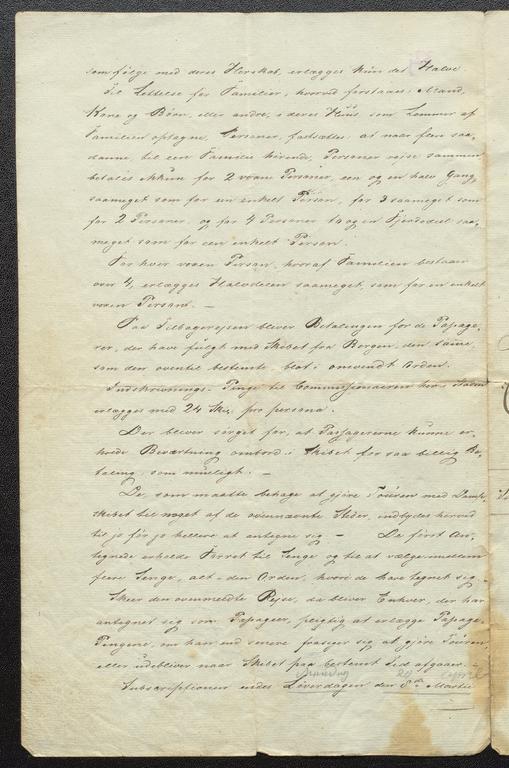 som følge med deres Herskab, erlægges kun det Halve.
Til Lettelse for Familier, hvorved forstaaes: Mand,
Kone og Børn, eller andre, i deres Huus som Lemmer af
Familien optagne, Personer, fastsættes: at naar flere saa-
danne, til een Familie hørende, Personer rejse sammen
betales ikkun for 2 voxne Personer, een og en halv Gang
saameget som for en enkelt Person, for 3 saameget som
for 2 Personer, og for 4 Personer to og en Fjerdedeel saa-
meget som for een enkelt Person.
For hver voxen Person, hvoraf Familien bestaaer
over 4, erlægges Halvdelen saameget, som for en enkelt
voxen Person. —
Paa Tilbagerejsen bliver Betalingen for de Passage-
rer, der have fulgt med Skibet fra Bergen, den samme,
som den oventil bestemte, blot i omvendt Orden.
Indskrivnings-Penge til Commissionairen her i Staden
erlægges med 24 Sk. pro persona.
Der bliver sørget for, at Passagererne kunne er-
holde Beværtning ombord i Skibet for saa billig Be-
taling, som mueligt. —
De, som maatte behage at gjøre Touren med Damp-
skibet til noget af de ovennævnte Steder, indbydes herved
til jo før jo hellere at antegne sig — De først An-
tegnede erholde Forret til Senge og til at vælge mellem
flere Senge, alt i den Orden, hvori de have tegnet sig.
Skeer den ovenmeldte Rejse, da bliver Enhver, der har
antegnet sig som Passageer, pligtig at erlægge Passage-
Pengene, om han end senere frasiger sig at gjøre Touren,
eller udebliver naar Skibet paa bestemt Tid afgaaer. —
Mandag 20 April
Subscriptionen endes Løverdagen den 8de Martii